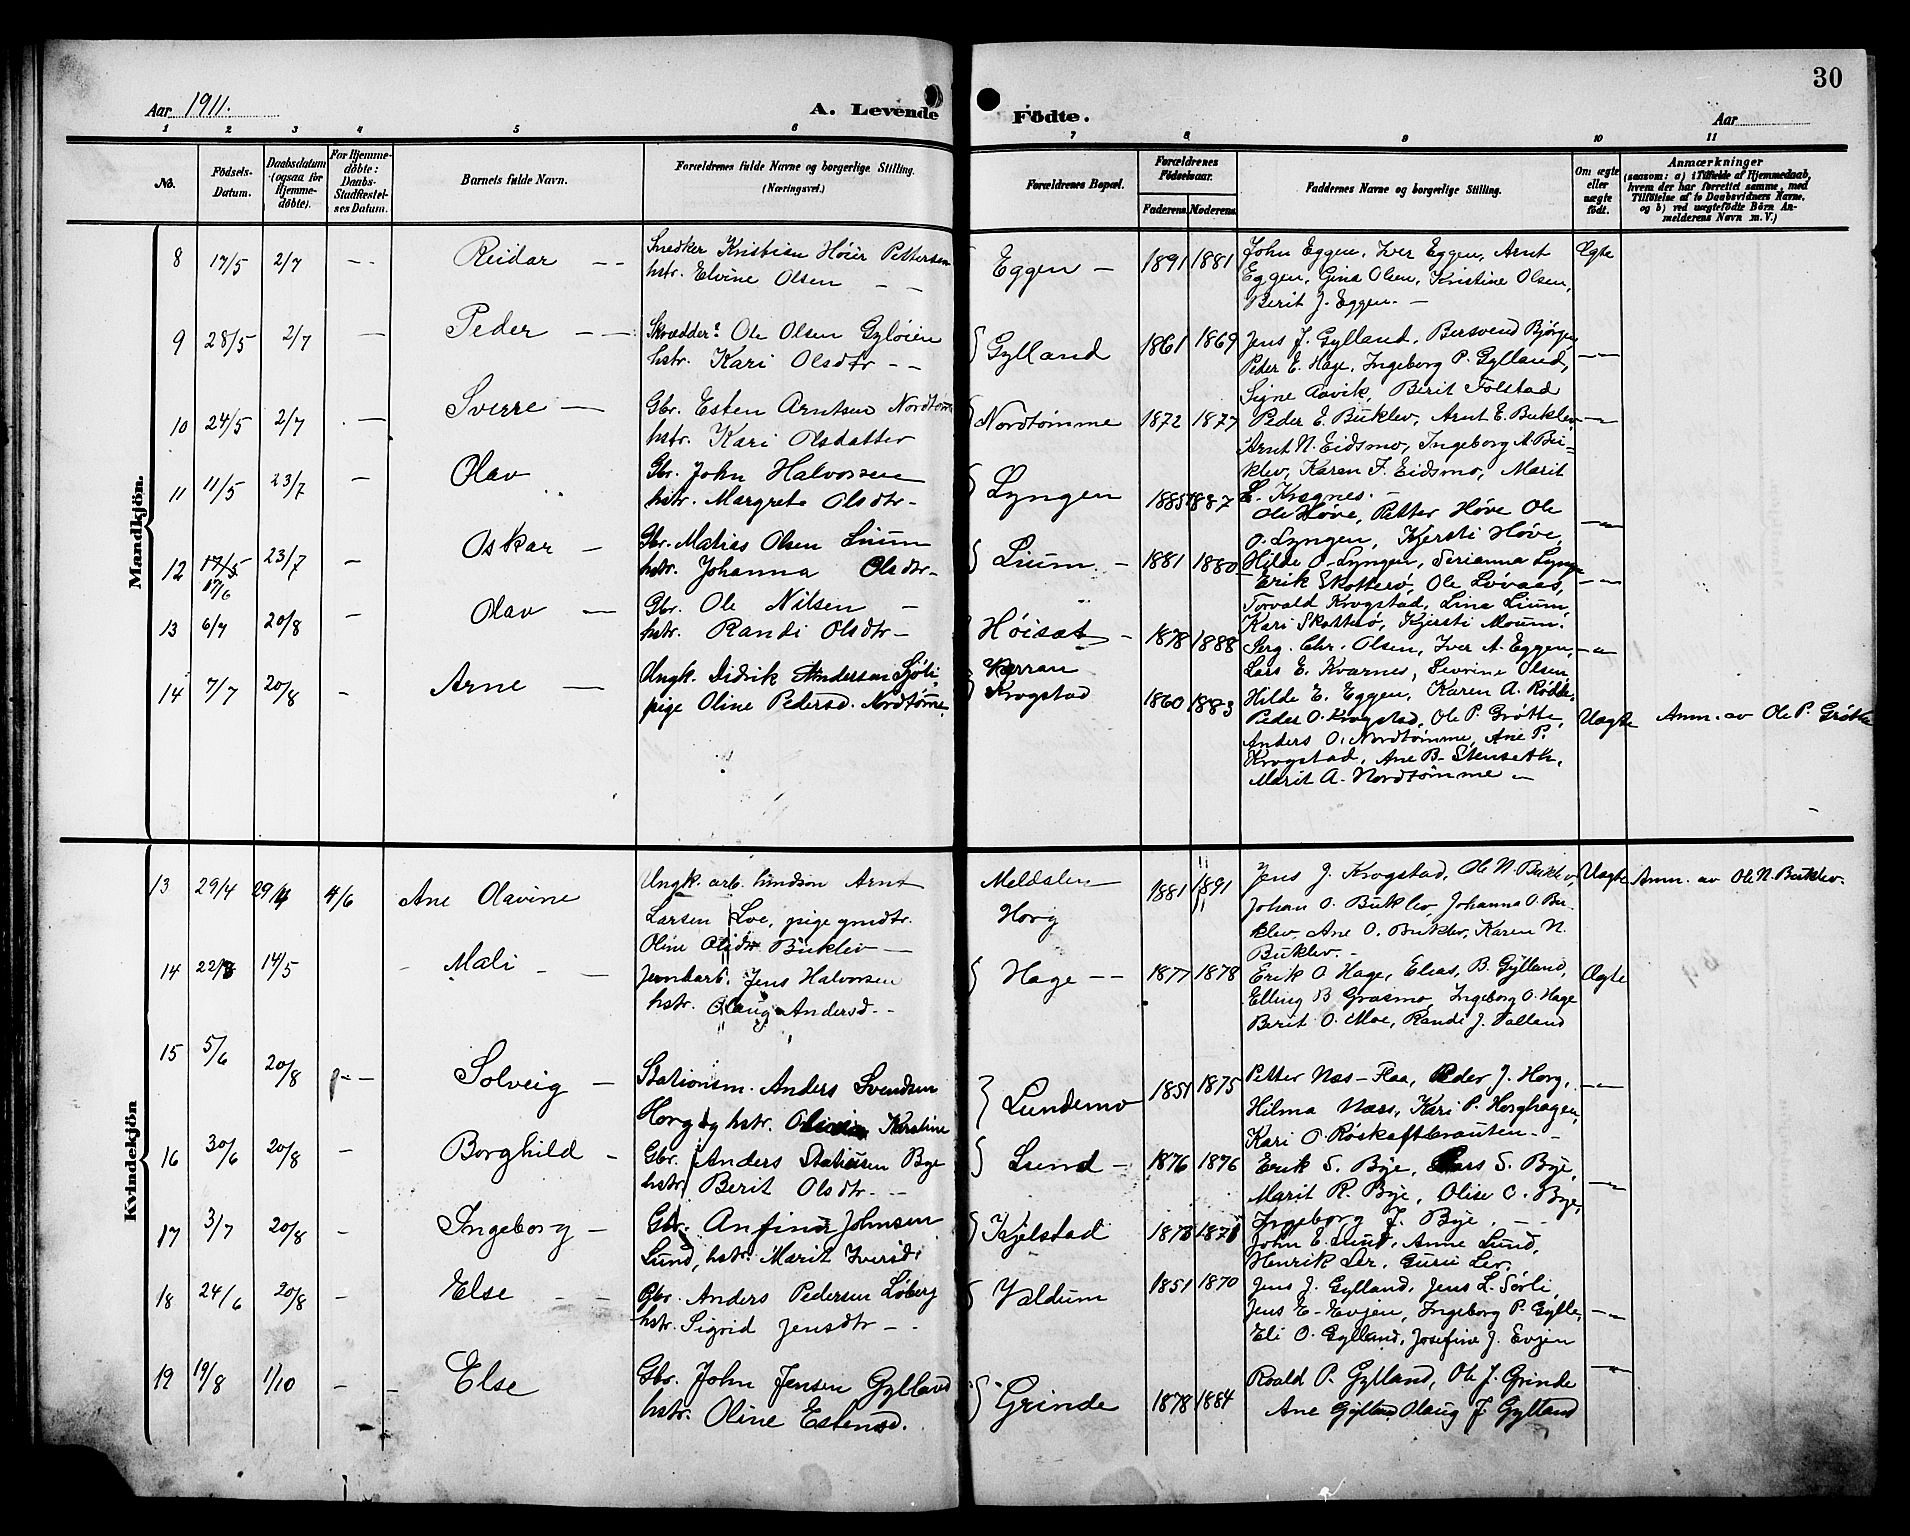 30
Aar 1911.
A. Levende Födte.
Aar
1 2 3 4 5 6 7 8 9 10 11
No.
Födsels-Datum.
Daabsdatum (ogsaa for Hjemmedöbte).
For Hjemmedöbte: Daabs-Stadfæstelses Datum.
Barnets fulde Navn.
Forældrenes fulde Navne og borgerlige Stilling. (Næringsvei.)
Forældrenes Bopæl.
Forældrenes Födselsaar.
Faderens. Moderens.
Faddernes Navne og borgerlige Stilling.
Om ægte eller uægte födt.
Anmærkninger
(saasom: a) i Tilfælde af Hjemmedaab, hvem der har forrettet samme, med Tilföielse af to Daabsvidners Navne, og b) ved uægtefödte Börn Anmelderens Navn m. V.)
Mandkjön.
8 17/5 2/7 - - Reidar - - Snedker Kristian Höier Pettersen
hstr. Elvine Olsen - -
Eggen - 1891 1881 John Eggen, Iver Eggen, Arnt
Eggen, Gina Olsen, Kristine Olsen,
Berit J. Eggen. -
Ægte
9 28/5 2/7 - Peder - - Skrædder Ole Olsen Gylöien
hstr. Kari Olsdtr - -
Gylland 1861 1869 Jens J. Gylland, Bersvend Björgen,
Peder E. Hage, Ingeborg P. Gylland,
Signe Aavik, Berit Folstad
10 24/5 2/7 - Sverre - Gbr. Esten Arntsen Nordtömme
hstr. Kari Olsdatter
Nordtömme 1872 1877 Peder E. Buklev, Arnt E. Buklev,
Arnt N. Eidsmo, Ingeborg A. Bu-
klev, Karen F. Eidsmo, Marit
L. Kragnes. -
11 11/5 23/7 - Olav Gbr. John Halvorsen
hstr. Margrete Olsdtr -
Lyngen 1885 1887 Ole Höve, Petter Höve Ole
O. Lyngen, Kjersti Höve,
Hilde O. Lyngen, Serianna Lyngen
12 17/5 17/6 23/7 - Oskar - Gbr. Matias Olsen Lium
hstr. Johanna Olsdtr -
Lium - 1881 1880 Erik Skotterö, Ole Lövaas,
Torvald Krogstad, Lina Lium,
Kari Skotterö, Kjersti Moum.
13 6/7 20/8 - Olav - Gbr. Ole Nilsen -
hstr. Randi Olsdtr -
Höisæt - 1878 1888 Serg. Chr. Olsen, Iver A. Eggen,
Lars E. Kvarnes, Sevrine Olsen
Hilde E. Eggen, Karen A. Rödde.
14 7/7 20/8 - Arne - Ungk. Didrik Andersen Sjöli,
pige Oline Pedersd. Nordtömme.
Krogstad 1860 1883 Peder O. Krogstad, Ole P. Grötte,
Anders O. Nordtömme, Ane P.
Krogstad, Ane B. Stenseth,
Marit A. Nordtömme -
Uægte Anm. av Ole P. Grötte
Kvindekjön
13 29/4 29/4 4/6 Ane Olavine Ungk. arb. Arnt
Larsen Loe, pige gmdtr.
Oline Olsdtr Buklev -
Meldalen
Horg
1881 1891 Jens J. Krogstad, Ole N. Buklev,
Johan O. Buklev Johanna O. Bu-
klev, Ane O. Buklev, Karen N.
Buklev. -
Uægte Anm. av Ole N. Buklev.
14 14/5 - Mali - - Jernbarb. Jens Halvorsen
hstr. Olaug Andersd. - -
Hage - - 1877 1878 Erik O. Hage, Elias B. Gylland,
Elling B Grasmo, Ingeborg O. Hage
Berit O. Moe, Randi J. Valland
Ægte
15 5/6 20/8 - - Solveig - Stationsm. Anders Svendsen
Horg og hstr. Olivia Kerstine
Lundemo 1851 1875 Petter Næs - Flaa, Peder J. Horg,
Hilma Næss, Kari P. Horghagen,
Kari O. Röskaftbrauten. -
16 30/6 20/8 - Borghild - Gbr. Anders Bye
hstr. Berit Olsdtr. - -
Lund - 1876 1876 Erik S. Bye, Lars S. Bye,
Marit R. Bye, Olise O. Bye,
Ingeborg J. Bye. - -
17 3/7 20/8 - Ingeborg - Gbr. Anfind Johnsen
Lund, hstr. Marit Iversd.
Kjelstad John E. Lund, Anne Lund,
Henrik Ler, Guru Ler.
18 24/6 20/8 - Else - - Gbr. Anders Pedersen Löberg
hstr. Sigrid Jensdtr - -
Valdum 1851 1870 Jens J. Gylland, Jens L. Sörli,
Jens E. Evjen, Ingeborg P. Gylle,
Eli O. Gylland, Josefine J. Evjen
19 19/8 1/10 - - Else Gbr. John Jensen Gylland
hstr. Oline Estensd.
Grinde 1878 1884 Roald P. Gylland, Ole J. Grinde
Ane Gylland Olaug J. Gylland